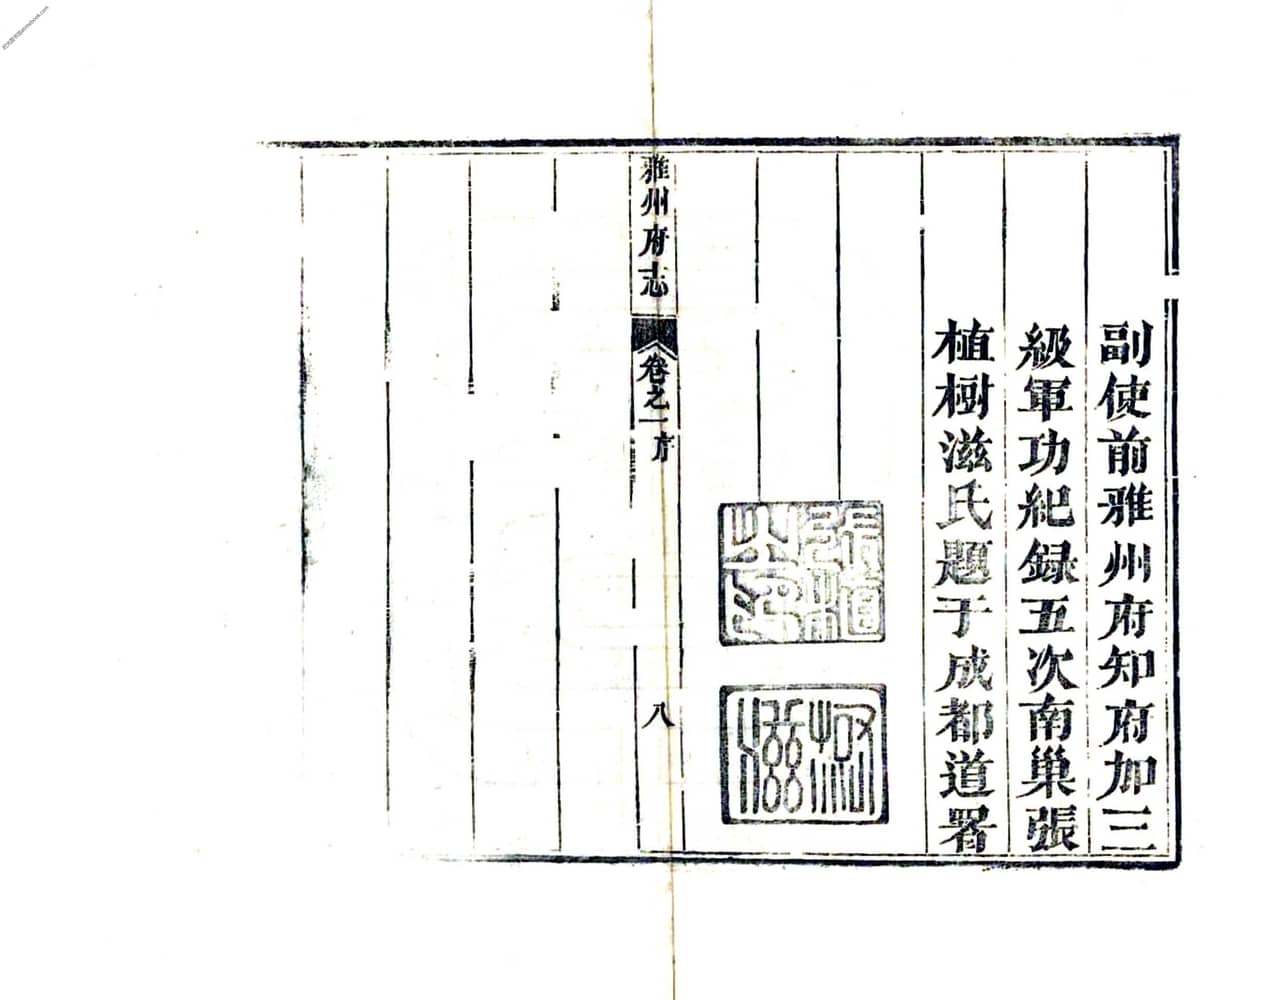 副使前雅州府知府加三
級軍功紀録五次南巢張
植樹滋氏題于成都道署
張植
樹滋
雅州府志
卷之一
序
八